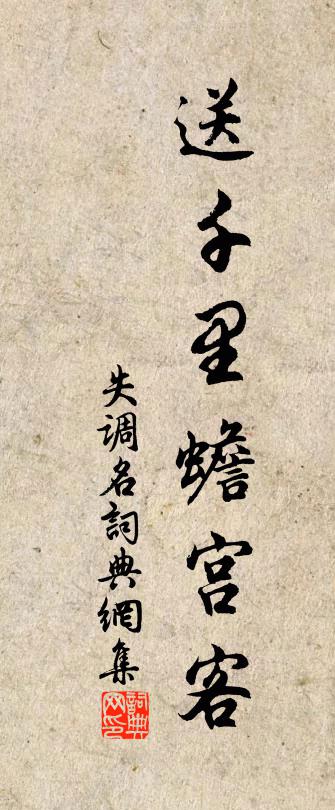 送千里蟾宫客
失调名詞典網集
詞典網印